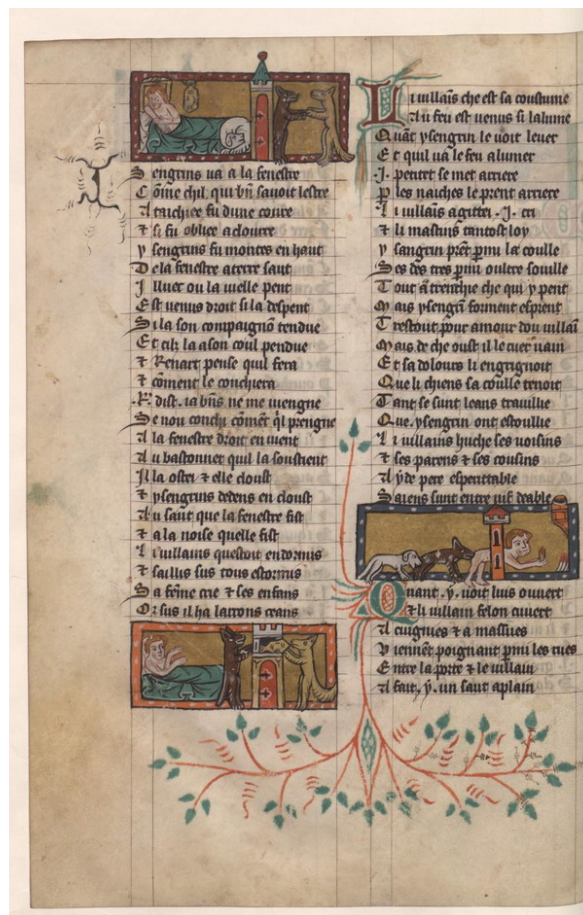 Y sengrins ua a la fenestre
C ōme chil qui bn̄ sauoit lestre
A taichiee fu dune coure
⁊ si fu obliee a cloure
Y sengrins fu montes en haut
D e la fenestre a terre saut
I lluec ou la uielle pent
E st uenus droit si la despent
S i la son compaignō tendue
E t cilz la a son coul pendue
⁊ Renart pense quil fera
⁊ cōment le conchiera
.R. dist. ia bn̄s ne me uiengne
S e nou conchi cōmēt q̄l prengne
A la fenestre droit en uient
A u bastonnet qui la soustient
I l la oste ⁊ elle cloust
⁊ ysengrins dedens en cloust
A u saut que la fenestre fist
⁊ a la noise quelle fist
L i uillains questoit endormis
⁊ saillis sus tous estormis
S a fēme crie ⁊ ses enfans
O r sus il ha larrons ceans
L i uillaīs che est sa coustume
A u feu est uenus si lalume
Q uāt ysengrin le uoit leuer
E t quil ua le feu alumer
.I. petitet se met arriere
P les naiches le prent arriere
L i uillaīs a gittei .I. cri
⁊ li mastins tantost loy
Y sangrin prēt pmi la coulle
S es dēs tres pmi oultre souille
T out a trenthie che qui y pent
M ais ysengn̄ forment esprent
T restout pour amour dou uillaī
M ais de che oust il le cuer uain
E t sa dolours li engrignoit
Q ue li chiens sa coulle tenoit
T ant se sunt leans trauillie
Q ue. ysengrin ont escoullie
L i uillains huche ses uoisins
⁊ ses parens ⁊ ses cousins
A yde pere esperitable
S aiens sunt entre uif deable
Q uant .y. uoit luis ouuert
⁊ li uillain felon cuuert
A cuignies ⁊ a massues
V iennēt poignant pmi les rues
E ntre la porte ⁊ le uillain
A fait. y. un saut a plain